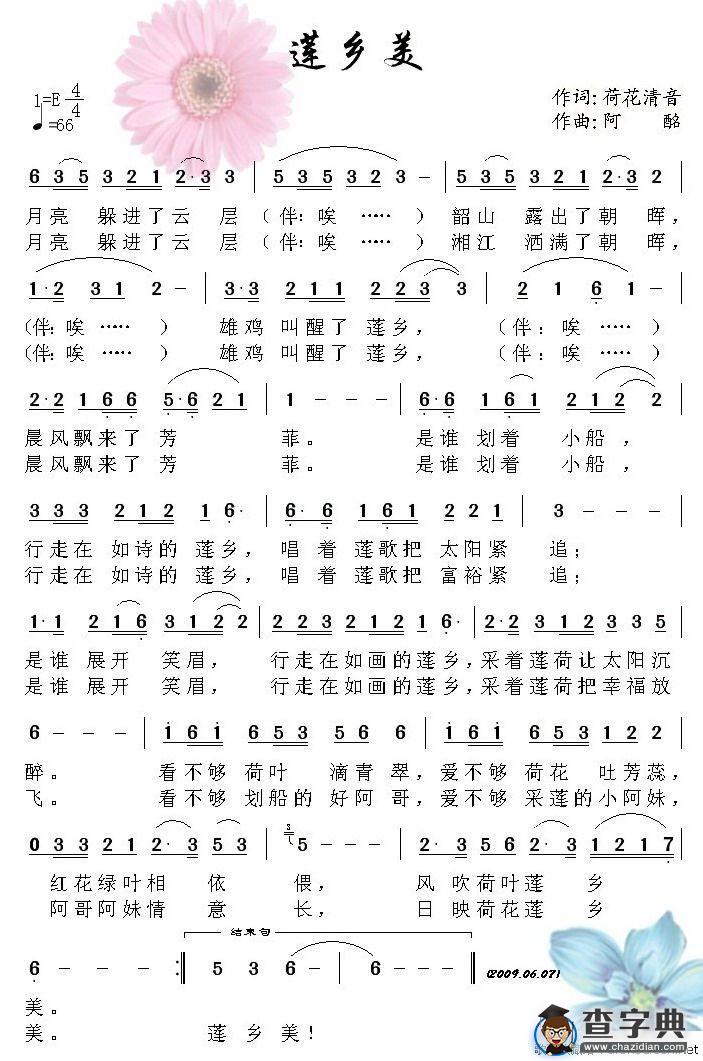 莲乡美
1=E 4/4
♩=66
作词:荷花清音
作曲:阿 酩
6 3 5 3 2 1 2·3 3 | 5 3 5 3 2 3 - | 3 5 3 5 3 2 1 2·3 2 |
月亮 躲进了云 层 (伴:唉 ……) 韶山 露出了朝 晖,
月亮 躲进了云 层 (伴:唉 ……) 湘江 洒满了朝 晖,
1·2 3 1 2 - | 3·3 2 1 2 2 2 3 3 | 2 1 6 1 - |
(伴:唉 ……) 雄鸡 叫醒了 莲乡, (伴:唉 ……)
(伴:唉 ……) 雄鸡 叫醒了 莲乡, (伴:唉 ……)
2·2 1 6 6 5·6 2 1 | 1 - - - | 6·6 1 6 1 2 1 2 2 |
晨风飘来了 芳 菲。 是谁 划着 小船,
晨风飘来了 芳 菲。 是谁 划着 小船,
3 3 3 2 1 2 1 6· | 6·6 1 6 1 2 2 1 | 3 - - - |
行走在 如诗的 莲乡, 唱 着 莲歌把 太阳紧 追;
行走在 如诗的 莲乡, 唱 着 莲歌把 富裕紧 追;
1·1 2 1 6 3 1 2 2 | 2 2 3 2 1 2 1 6· | 2·2 3 1 2 3 3 5 |
是谁 展开 笑眉, 行走在如画的莲乡,采着莲荷让太阳沉
是谁 展开 笑眉, 行走在如画的莲乡,采着莲荷把幸福放
6 - - | 1 6 1 6 5 3 5 | 1 6 1 6 5 3 5 |
醉。 看不够 荷叶 滴青 翠,爱不够 荷花 吐芳蕊,
飞。 看不够 划船的 好阿 哥,爱不够 采莲的小阿妹,
0 3 3 2 2 1 2·3 5 3 | 5 - - - | 2·3 5 6 2·3 1 2 1 7 |
红花绿叶相 依 偎, 风 吹荷叶莲 乡
阿哥阿妹情 意 长, 日 映荷花莲 乡
结束句
6 - - - :| 5 3 6 - | 6 - - - | (2009.06.07)
美。
美。 莲 乡 美!
查字典
www.chazidian.com